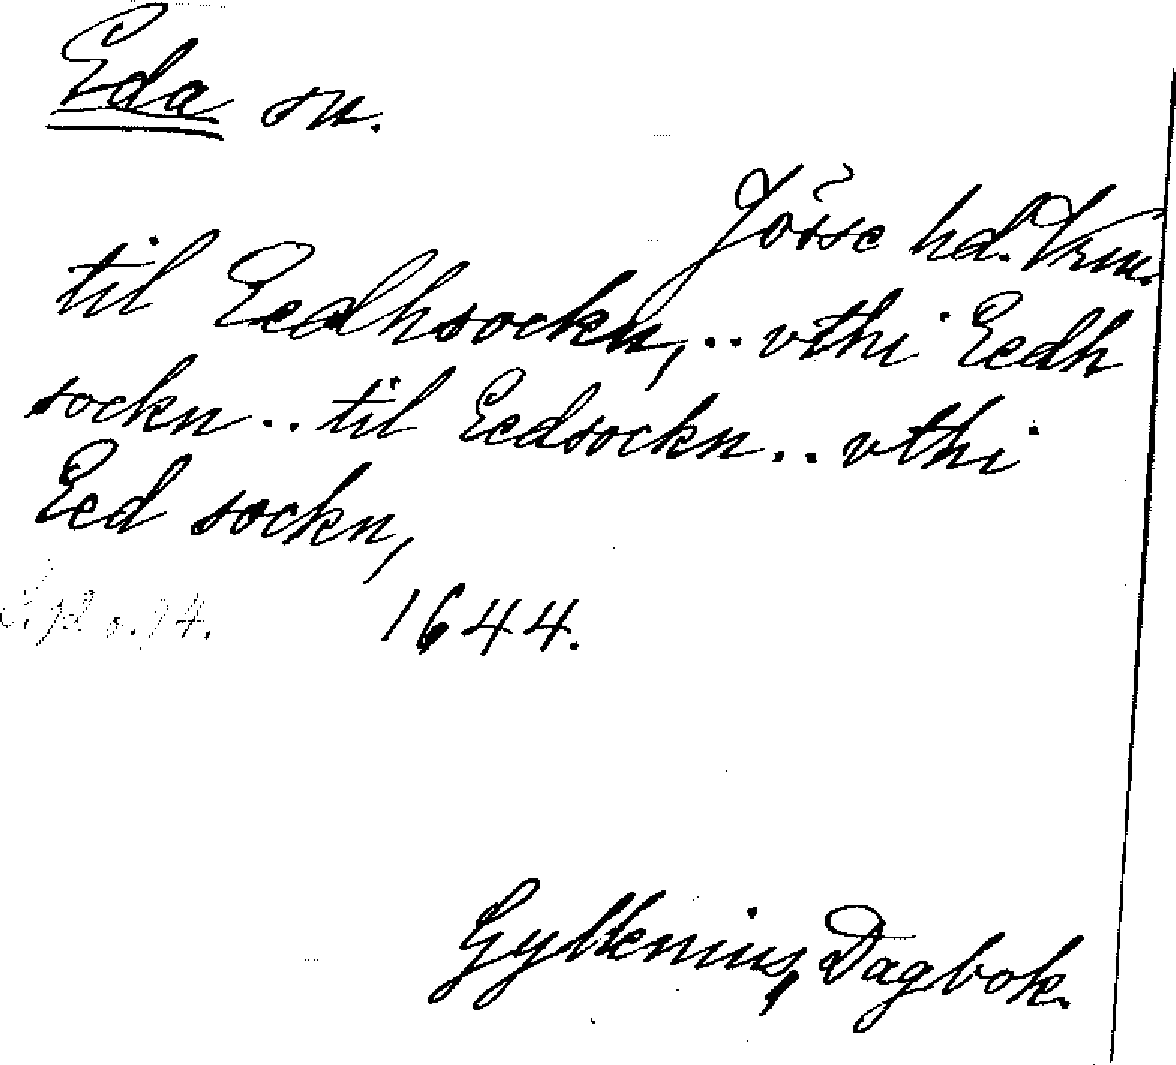 Eda sn.
Jösse hd. Vrm.
til Eedhsockn, .. vthi Eedh
sockn .. til Eedsockn .. vthi
Eed sockn,
1644.
Gyllenius, Dagbok.